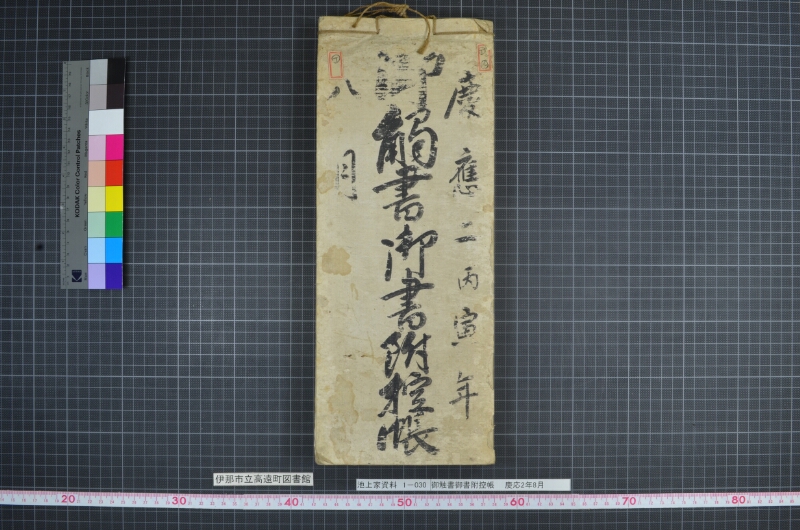 慶應二丙寅年
御觸書御書附控帳
八月
KODAK Color Control Patches
Kodak
伊那市立高遠町図書館
池上家資料 1－030 御触書御書附控帳 慶応2年8月
20 30 40 50 60 70 80